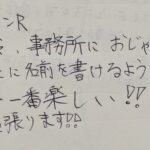 ンR
、事務所に おじゃ
に名前を書けるよう
一番楽しい!!
張ります!!